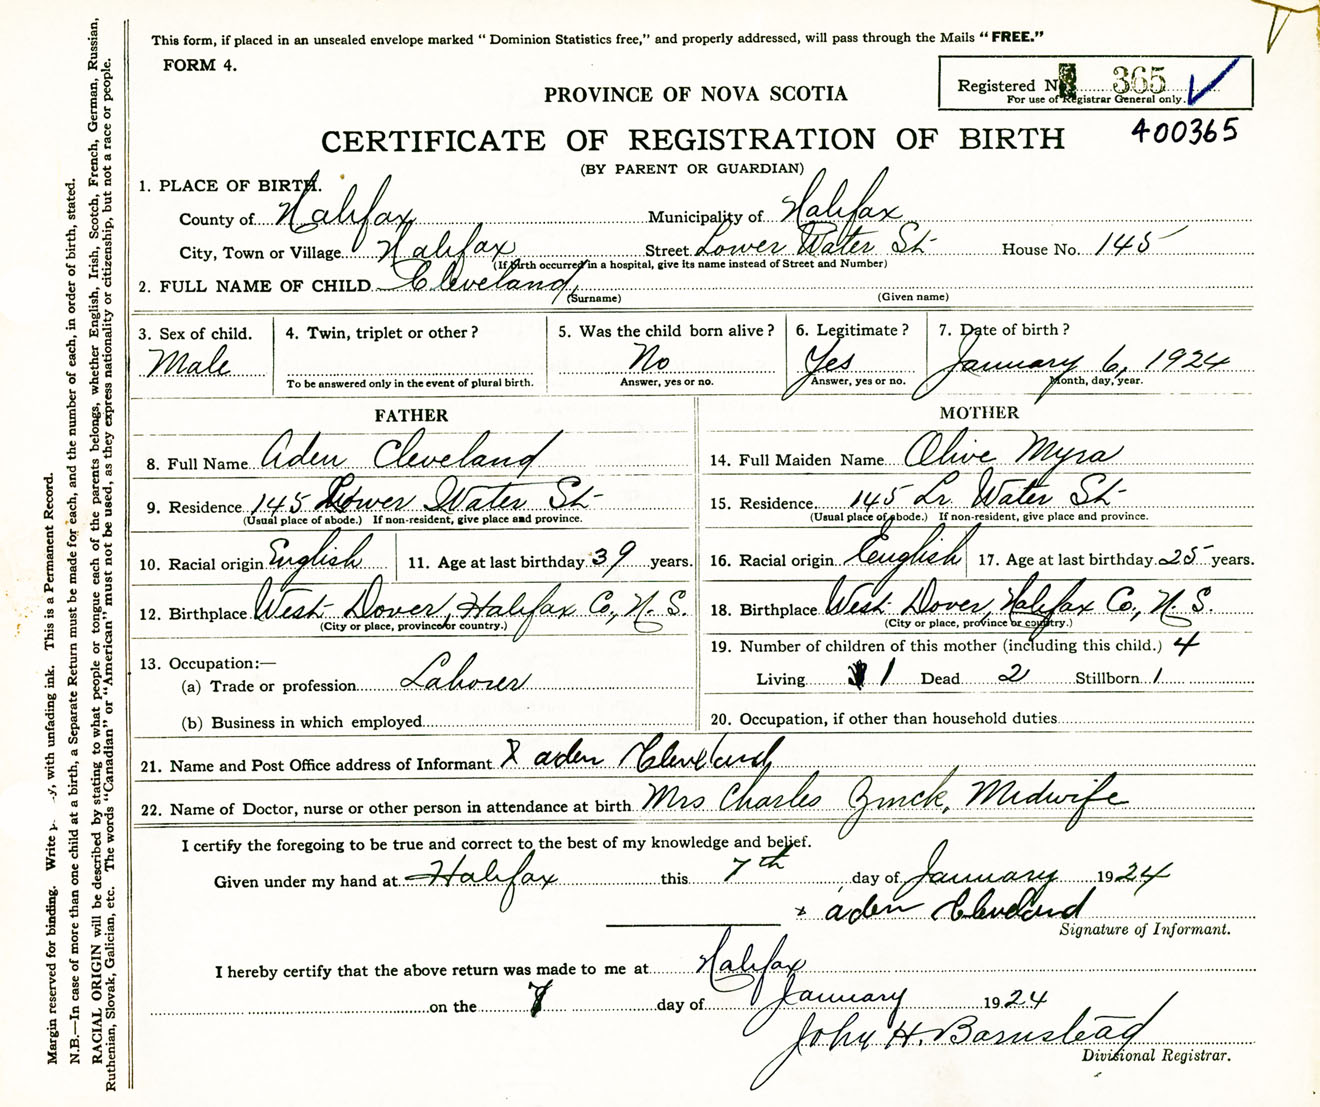 This form, if placed in an unsealed envelope marked "Dominion Statistics free," and properly addressed, will pass through the Mails "FREE."
FORM 4.
Registered No. 365
For use of Registrar General only.
PROVINCE OF NOVA SCOTIA
400365
CERTIFICATE OF REGISTRATION OF BIRTH
(BY PARENT OR GUARDIAN)
1. PLACE OF BIRTH.
County of Halifax Municipality of Halifax
City, Town or Village Halifax Street Lower Water St House No. 145
(If birth occurred in a hospital, give its name instead of Street and Number)
2. FULL NAME OF CHILD Cleveland,
(Surname) (Given name)
3. Sex of child. 4. Twin, triplet or other? 5. Was the child born alive? 6. Legitimate? 7. Date of birth?
Male No Yes January 6, 1924
To be answered only in the event of plural birth. Answer, yes or no. Answer, yes or no. Month, day, year.
FATHER MOTHER
8. Full Name Aden Cleveland 14. Full Maiden Name Olive Myra
9. Residence 145 Lower Water St 15. Residence 145 Lr. Water St
(Usual place of abode.) If non-resident, give place and province. (Usual place of abode.) If non-resident, give place and province.
10. Racial origin English 11. Age at last birthday 39 years. 16. Racial origin English 17. Age at last birthday 25 years.
12. Birthplace West Dover, Halifax Co., N. S. 18. Birthplace West Dover, Halifax Co., N. S.
(City or place, province or country.) (City or place, province or country.)
19. Number of children of this mother (including this child.) 4
13. Occupation:—
(a) Trade or profession Laborer Living 1 Dead 2 Stillborn 1
(b) Business in which employed 20. Occupation, if other than household duties
21. Name and Post Office address of Informant X aden Cleveland
22. Name of Doctor, nurse or other person in attendance at birth Mrs Charles Zinck, Midwife
I certify the foregoing to be true and correct to the best of my knowledge and belief.
Given under my hand at Halifax this 7th day of January 1924
x aden Cleveland
Signature of Informant.
I hereby certify that the above return was made to me at Halifax
on the 7 day of January 1924
John H. Barnstead
Divisional Registrar.
Margin reserved for binding. Write y, with unfading ink. This is a Permanent Record.
N.B.—In case of more than one child at a birth, a Separate Return must be made for each, and the number of each, in order of birth, stated.
RACIAL ORIGIN will be described by stating to what people or tongue each of the parents belongs, whether English, Irish, Scotch, French, German, Russian,
Ruthenian, Slovak, Galician, etc. The words "Canadian" or "American" must not be used, as they express nationality or citizenship, but not a race or people.